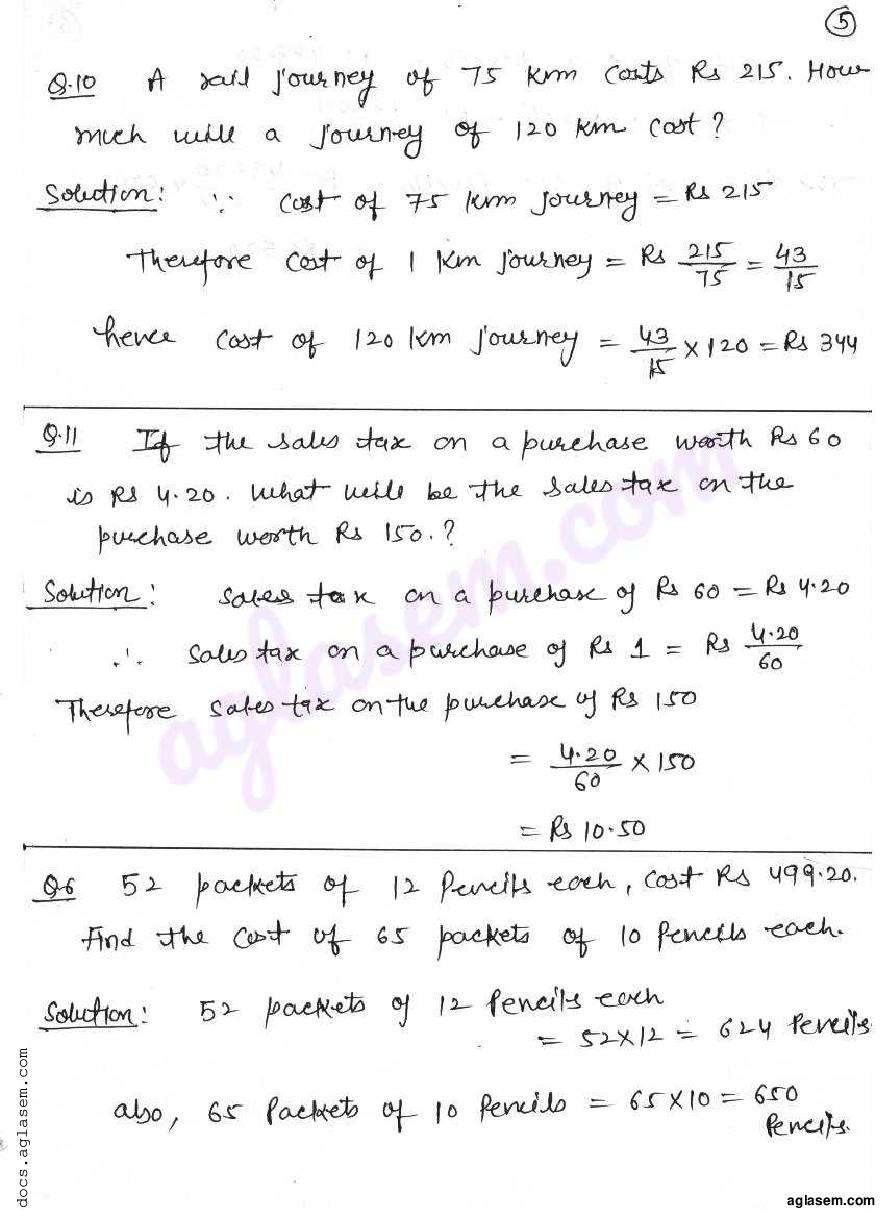 5
Q.10 A rail journey of 75 km costs Rs 215. How
much will a journey of 120 km cost?
Solution: ∵ cost of 75 km journey = Rs 215
Therefore cost of 1 km journey = Rs 215/75 = 43/15
hence cost of 120 km journey = 43/15 × 120 = Rs 344
Q.11 If the sales tax on a purchase worth Rs 60
is Rs 4.20. What will be the sales tax on the
purchase worth Rs 150.?
Solution: Sales tax on a purchase of Rs 60 = Rs 4.20
∴ Sales tax on a purchase of Rs 1 = Rs 4.20/60
Therefore sales tax on the purchase of Rs 150
= 4.20/60 × 150
= Rs 10.50
Q6 52 packets of 12 Pencils each, cost Rs 499.20.
Find the cost of 65 packets of 10 Pencils each.
Solution: 52 packets of 12 Pencils each
= 52×12 = 624 Pencils
also, 65 Packets of 10 Pencils = 65×10 = 650
Pencils.
aglasem.com
docs.aglasem.com
aglasem.com